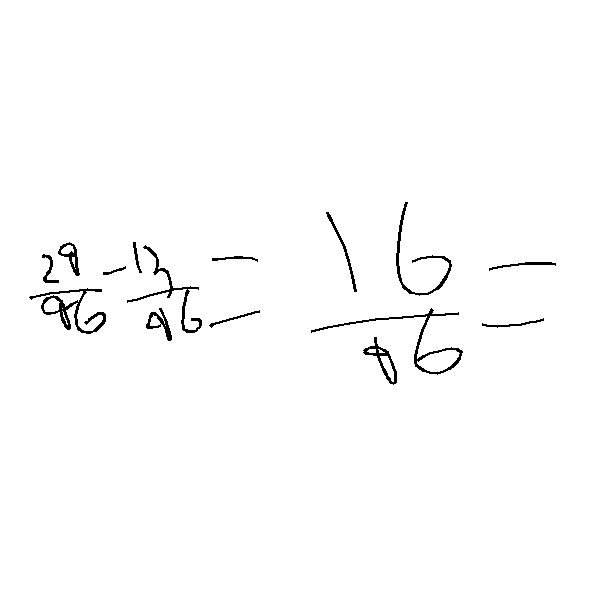 29/96 - 13/96 = 16/96 =